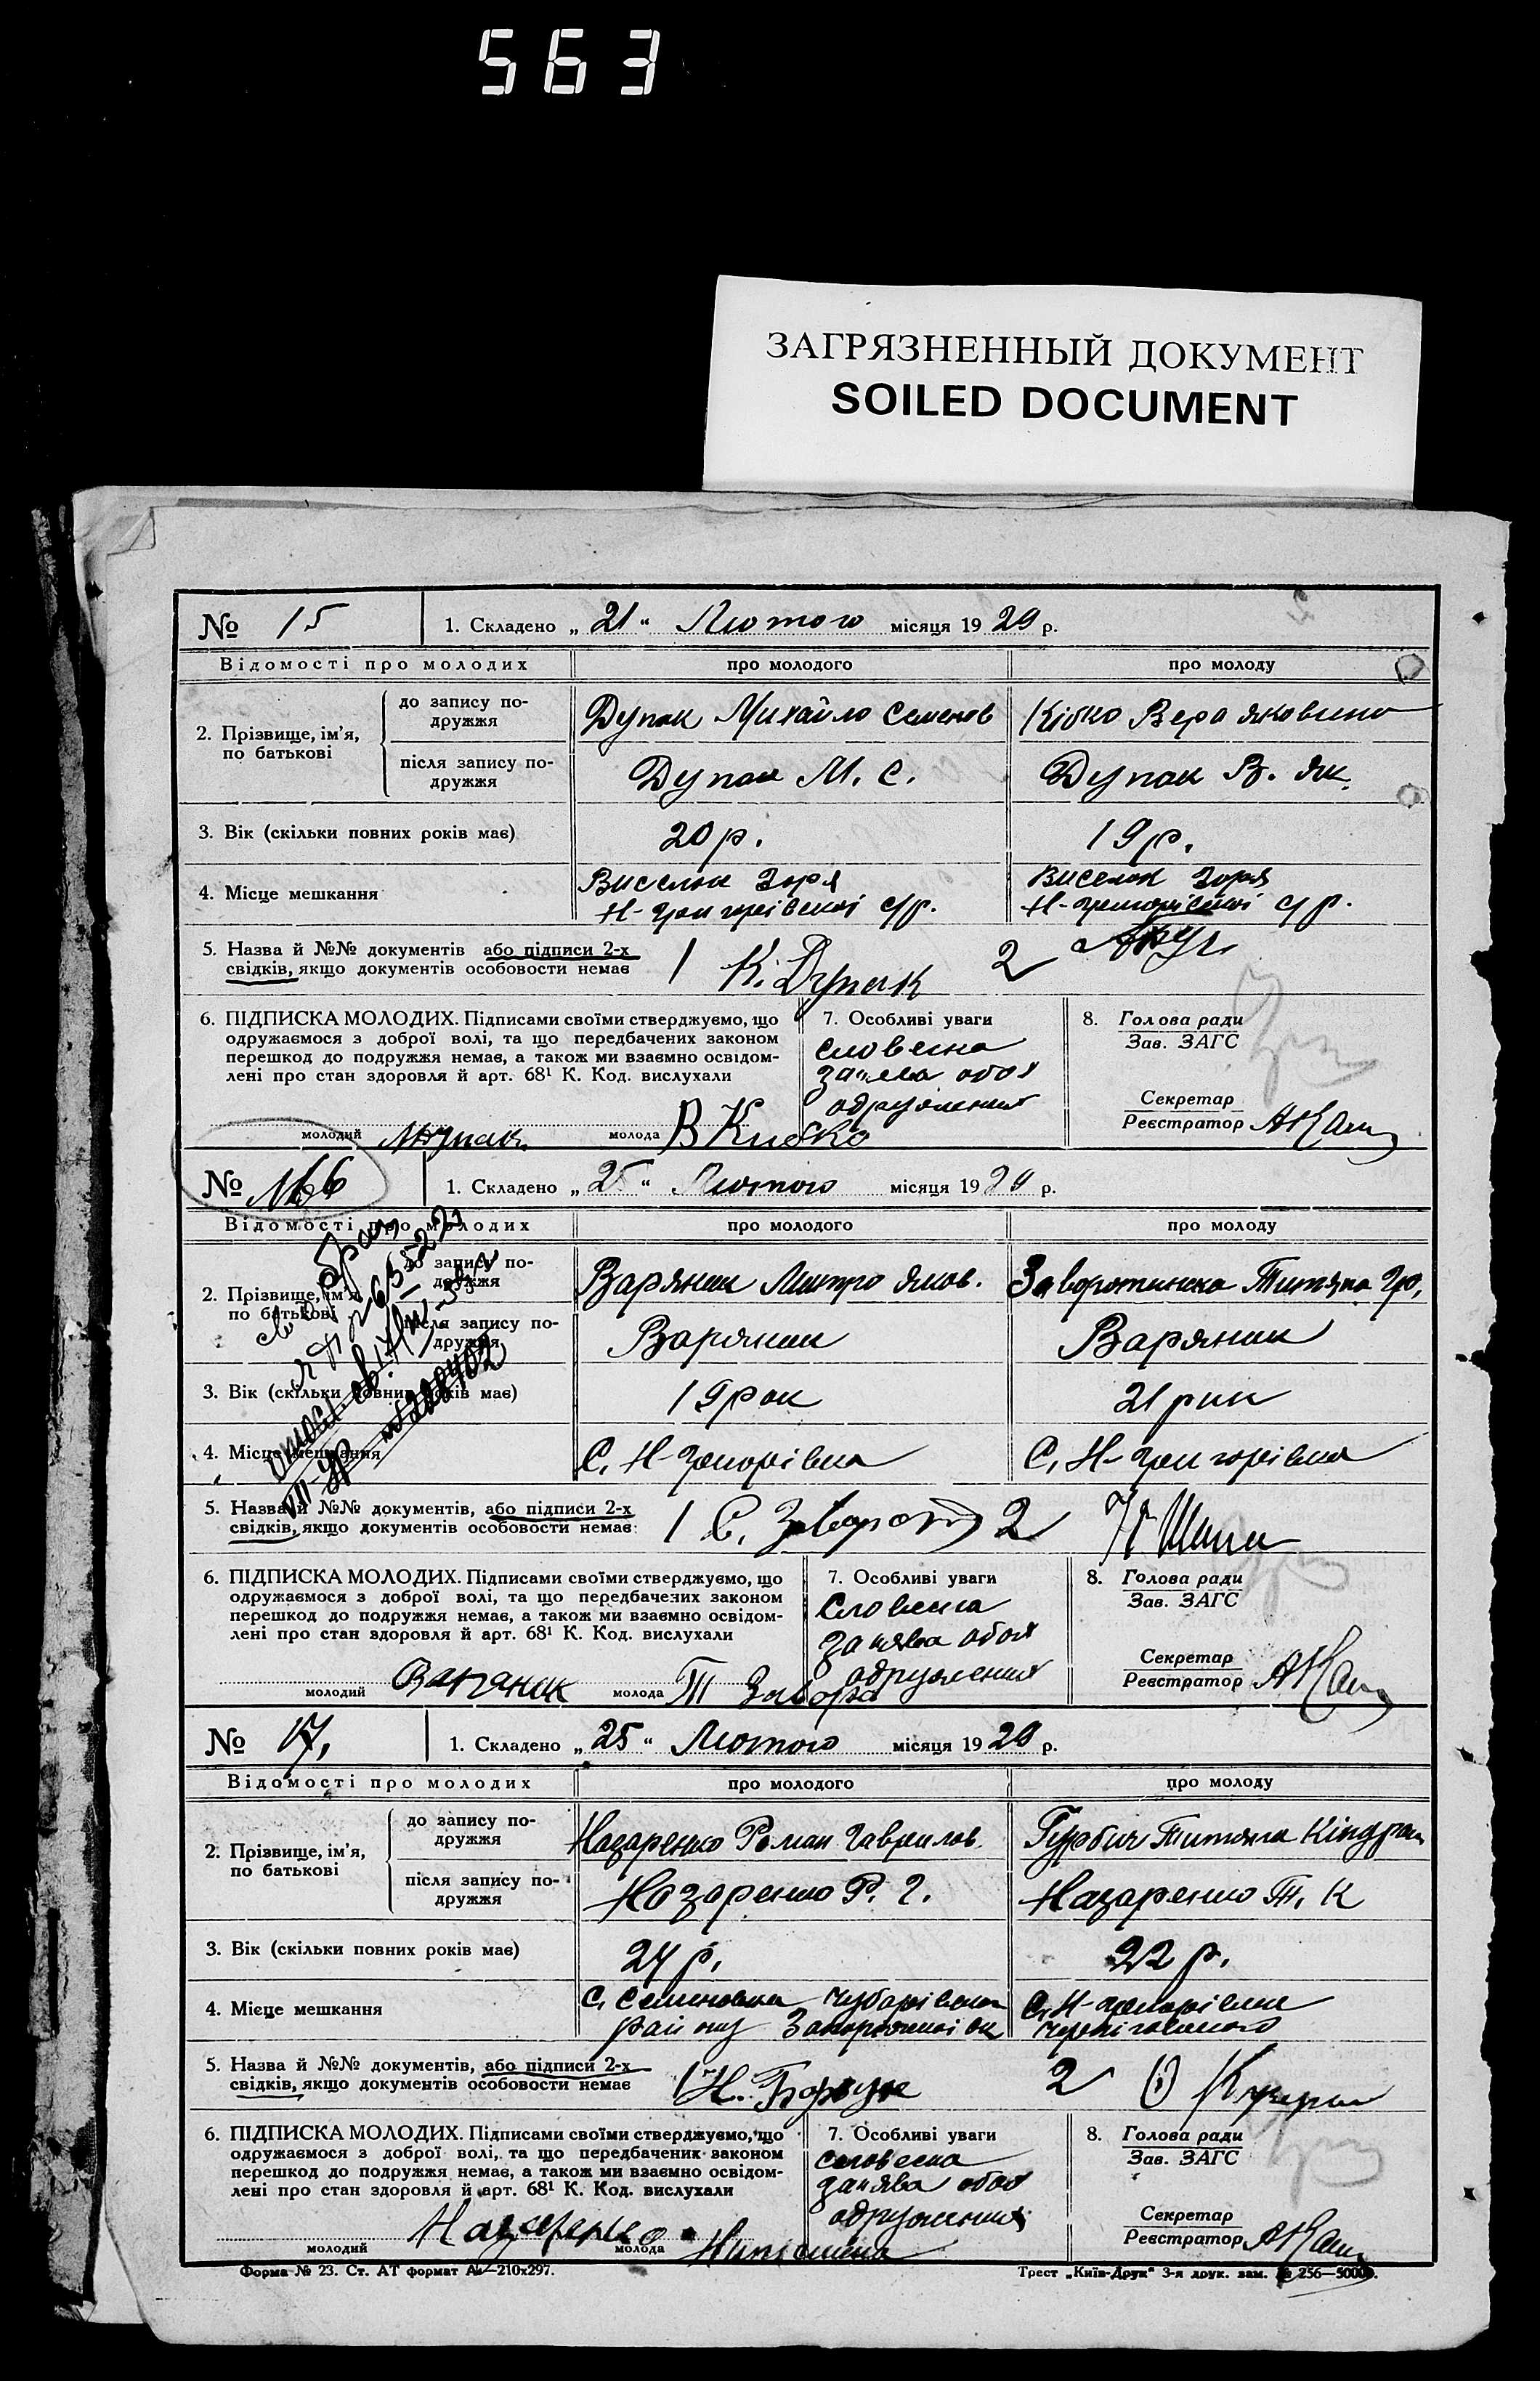 563
ЗАГРЯЗНЕННЫЙ ДОКУМЕНТ
SOILED DOCUMENT
№ 15
1. Складено „ 21 “ Лютого місяця 19 29 р.
Відомості про молодих
про молодого
про молоду
2. Прізвище, ім’я,
по батькові
до запису по-
дружжя
Дупак Михайло Семенов
Кібко Вера Яковлина
після запису по-
дружжя
Дупак М. С.
Дупак В. Як.
3. Вік (скільки повних років має)
20 р.
19 р.
4. Місце мешкання
Виселок Зоря
Н-Григорівскої с/р.
Виселок Зоря
Н-Григорівскої с/р.
5. Назва й №№ документів або підписи 2-х
свідків, якщо документів особовости немає
1 К. Дупак 2
6. ПІДПИСКА МОЛОДИХ. Підписами своїми стверджуємо, що
одружаємося з доброї волі, та що передбачених законом
перешкод до подружжя немає, а також ми взаємно освідом-
лені про стан здоровля й арт. 68¹ К. Код. вислухали
молодий
молода В Кибко
7. Особливі уваги
словесна
заява обох
одружения
8. Голова ради
Зав. ЗАГС
Секретар
Реєстратор
№ 16
1. Складено „ 25 “ Лютого місяця 19 29 р.
Відомості про молодих
про молодого
про молоду
2. Прізвище, ім’я,
по батькові
до запису по-
дружжя
Варяник Митро Яков.
Заворотинска Титяна Гр.
після запису по-
дружжя
Варяник
Варяник
3. Вік (скільки повних років має)
19 рок
21 рик
4. Місце мешкання
С. Н-Григорівка
С. Н-Григорівка
5. Назва й №№ документів, або підписи 2-х
свідків, якщо документів особовости немає:
1 С. 2
6. ПІДПИСКА МОЛОДИХ. Підписами своїми стверджуємо, що
одружаємося з доброї волі, та що передбачених законом
перешкод до подружжя немає, а також ми взаємно освідом-
лені про стан здоровля й арт. 68¹ К. Код. вислухали
молодий Варяник
молода Т
7. Особливі уваги
Словесна
заява обох
одружения
8. Голова ради
Зав. ЗАГС
Секретар
Реєстратор
№ 17.
1. Складено „ 25 “ Лютого місяця 19 29 р.
Відомості про молодих
про молодого
про молоду
2. Прізвище, ім’я,
по батькові
до запису по-
дружжя
Назаренко Роман Гаврилов.
Гурбич Титяна Кіндрат
після запису по-
дружжя
Назаренко Р. Г.
Назаренко Т. К
3. Вік (скільки повних років має)
24 р.
22 р.
4. Місце мешкання
С. Семеновка Чубарівского
району Запорізької ок
С. Н-Григорівка
Чернігівского
5. Назва й №№ документів, або підписи 2-х
свідків, якщо документів особовости немає
1 Н. 2
6. ПІДПИСКА МОЛОДИХ. Підписами своїми стверджуємо, що
одружаємося з доброї волі, та що передбачених законом
перешкод до подружжя немає, а також ми взаємно освідом-
лені про стан здоровля й арт. 68¹ К. Код. вислухали
молодий Назаренко
молода
7. Особливі уваги
словесна
заява обох
одружения
8. Голова ради
Зав. ЗАГС
Секретар
Реєстратор
Форма № 23. Ст. АТ формат А₄—210x297.
Трест „Київ-Друк“ 3-я друк. зам. № 256—50000.